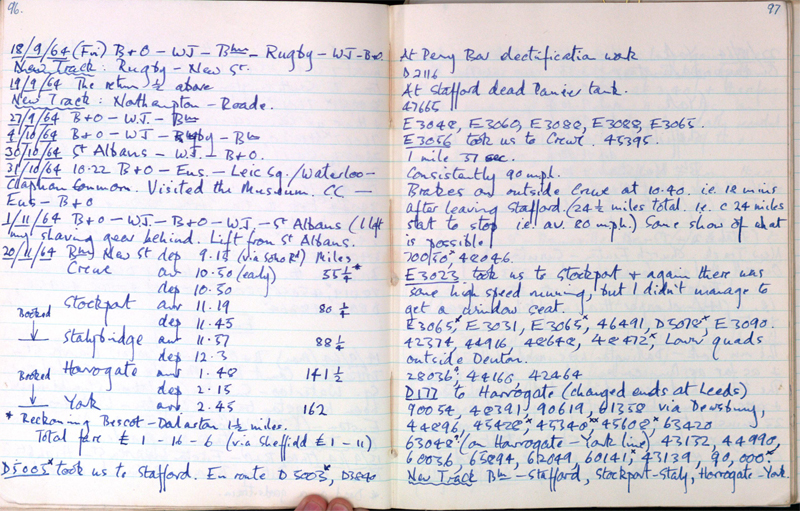 96.
18/9/64 (Fri) B+O – WJ – Bham – Rugby – WJ – B+O.
New Track: Rugby – New St.
19/9/64 The return ½ above
New Track: Northampton – Roade.
27/9/64 B+O – W.J. – Bham
4/10/64 B+O – WJ – Rugby – Bham
30/10/64 St Albans – W.J. – B+O.
31/10/64 10.22 B+O – Eus. – Leic Sq. / Waterloo –
Clapham Common. Visited the Museum. CC –
Eus – B+O
1/11/64 B+O – W.J. – B+O – W.J. – St Albans (I left
my shaving gear behind. Lift from St Albans.
20/11/64 Bham New St dep 9.15 (via Soho Rd) Miles
Crewe arr 10.50 (early) 55¼*
dep 10.50
Stockport arr 11.19 80¼
dep 11.45
Booked
Stalybridge arr 11.57 88¼
dep 12.3
Harrogate arr 1.48 141½
Booked
dep 2.15
York arr 2.45 162
* Reckoning Bescot – Darlaston 1½ miles.
Total fare £1-16-6 (via Sheffield £1-11)
D5005* took us to Stafford. En route D5003*, D3840
97
At Perry Bar electrification work
D2116
At Stafford dead Panier tank.
47665
E3048, E3060, E3088, E3088, E3065.
E3056 took us to Crewe. 45395.
1 mile 37 sec.
Consistently 90 mph.
Brakes on outside Crewe at 10.40. i.e. 18 mins
after leaving Stafford. (24½ miles total. i.e. c 24 miles
start to stop i.e. av. 80 mph.) Some show of what
is possible!
70050*, 48046.
E3023 took us to Stockport & again there was
some high speed running, but I didn't manage to
get a window seat.
E3065*, E3031, E3065*, 46491, D5078*, E3090.
42374, 44916, 48648, 48472*, Lowr quads
outside Denton.
28036?, 44166, 42464
D177 to Harrogate (changed ends at Leeds)
90054, 48391, 90619, 61358 via Dewsbury,
44896, 45428*, 45340**, 45608*, 63420
63048? (on Harrogate – York line) 43132, 44990,
60036, 65894, 62049, 60141*, 43139, 90,000*.
New Track Bham – Stafford, Stockport – Staly, Harrogate – York.